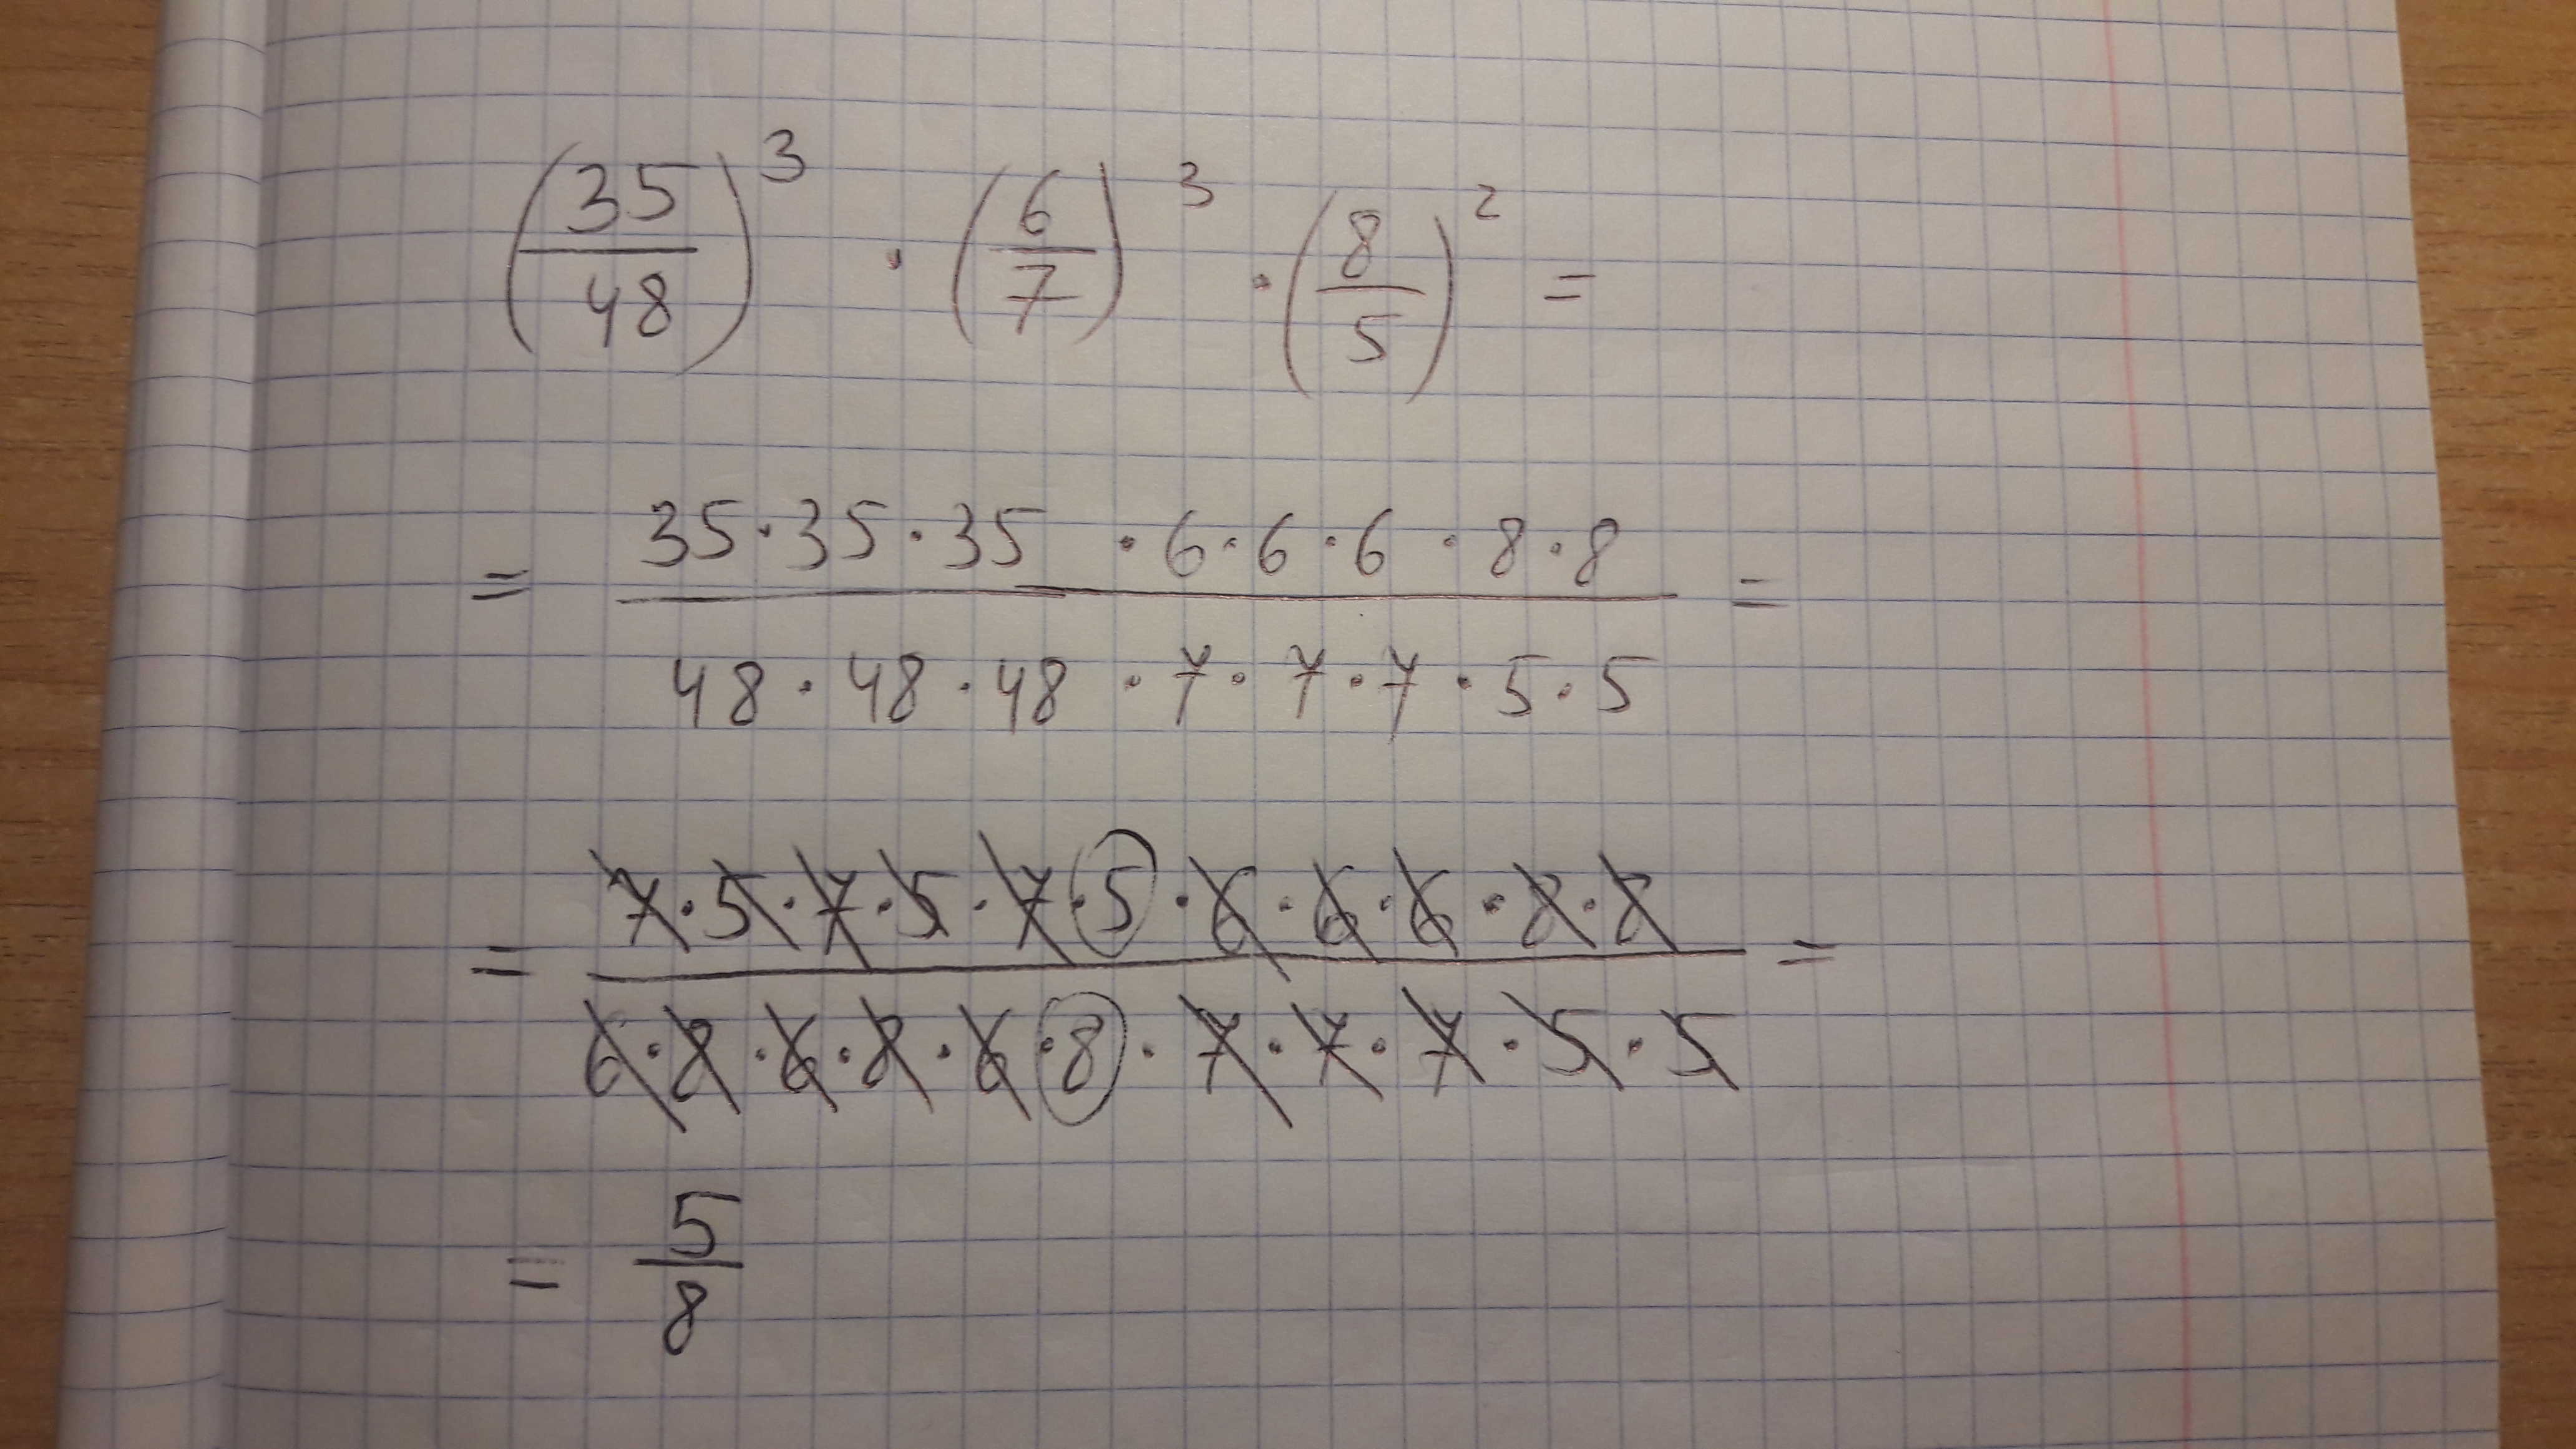 (35/48)³ · (6/7)³ · (8/5)² =
= (35·35·35 · 6·6·6 · 8·8)/(48·48·48 · 7·7·7·5·5) =
= (7·5·7·5·7·5·6·6·6·8·8)/(6·8·6·8·6·8·7·7·7·5·5) =
= 5/8